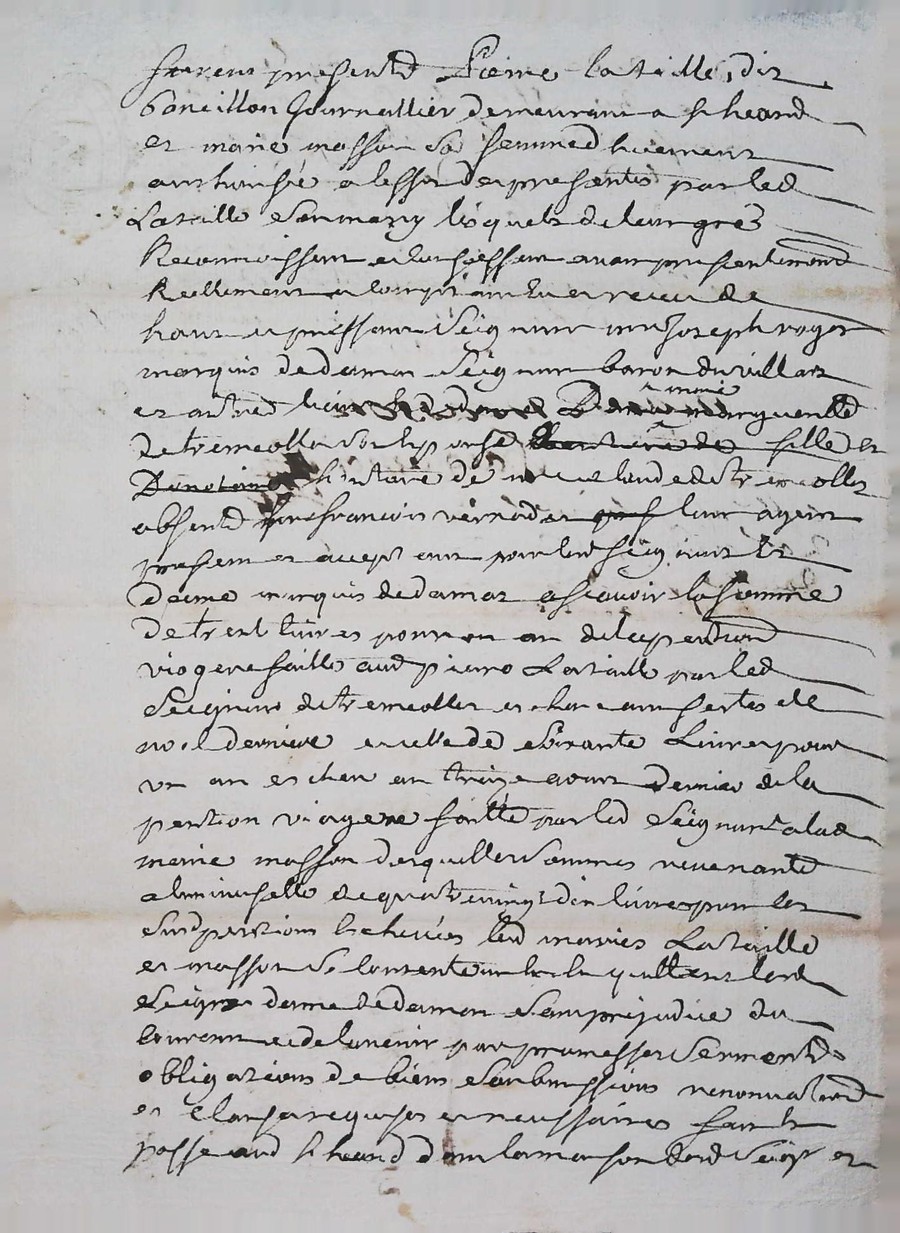 furent presents Pierre Lataille, dit
journallier demeurant a St heand
et marie masson sa femme d huement
authorisée a leffet des presentes par led
Lataille son mary lesquels de leur grés
Reconnoissent et confessent avoir presentement
Reellement et comptant eu et receu de
haut et puissant Seigneur joseph roger
marquis de damas Seigneur baron du villars
et autres lieux marie marguerite
de tremeolles son épouse fille et
héritiere de de tremeolles
absents françois leur agent
present et acceptant pour lesd Seigneur et
dame marquis de damas a scavoir la somme
de trente livres pour un an de la pention
viagere faitte aud pierre Lataille par led
Seigneur de tremeolles et cheue aux festes de
noel derniere et celle de soixante Livres pour
un an escheu au treize aoust dernier de la
pention viagere faitte par led Seigneur a lad
marie masson desquelles sommes revenants
a la universelle de quatre vingt dix livres pour les
susd pentions lesd mariés Lataille
et masson se contentent et quittent lesd
Seigr dame de damas sans prejudice du
courant et de lavenir par promesses serments
obligations de biens soubmissions renonciations
et clauses requises et necessaires fait et
passé aud St heand dans la maison dud Seigr et